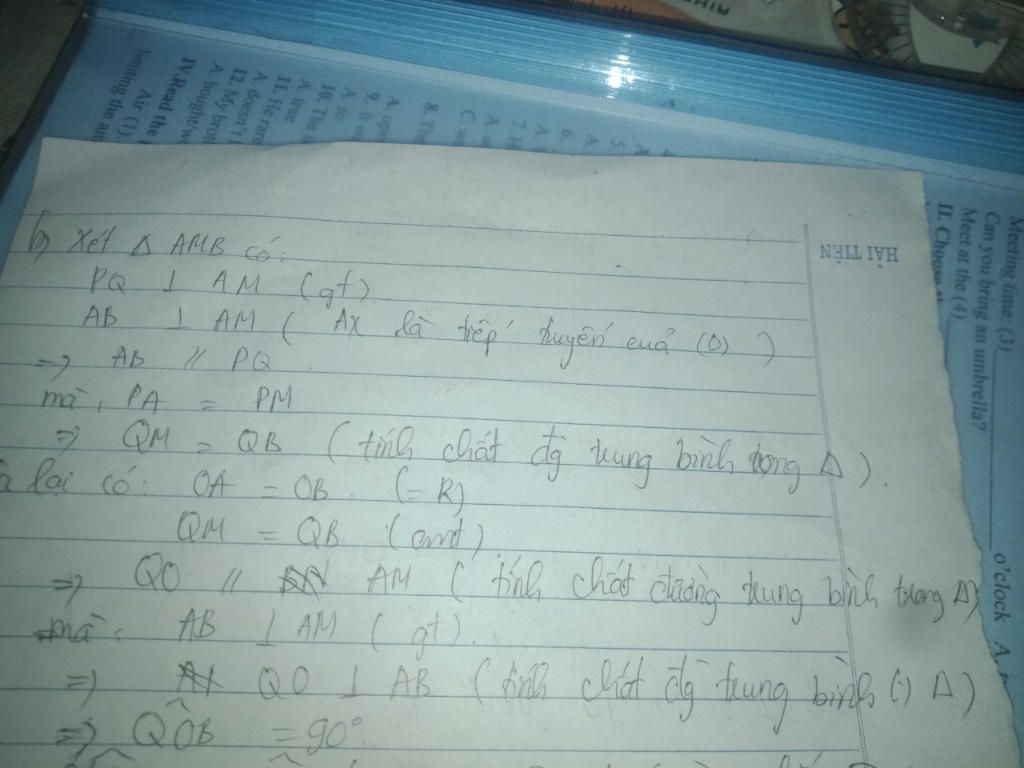 b) Xét Δ AMB có:
PQ ⊥ AM (gt)
AB ⊥ AM ( Ax là tiếp tuyến của (O) )
=> AB // PQ
mà, PA = PM
=> QM = QB ( tính chất đg trung bình trong Δ ).
lại có: OA = OB (= R)
QM = QB (cmt)
=> QO // AM ( tính chất đường trung bình trong Δ)
mà: AB ⊥ AM ( gt ).
=> QO ⊥ AB ( tính chất đg trung bình (:) Δ )
=> QÔB = 90°
HẢI TIẾN
Meeting time: (3)
Can you bring an umbrella?
Meet at the (4) o'clock
II. Choose
A.
5.
A.
6.
A.
7.
A.
C.
8. Th
A.
9. It
A. so
10. The
A. true
11. He
A. doesn't
12. My bro
A. bought
IV. Read the
Air (1)